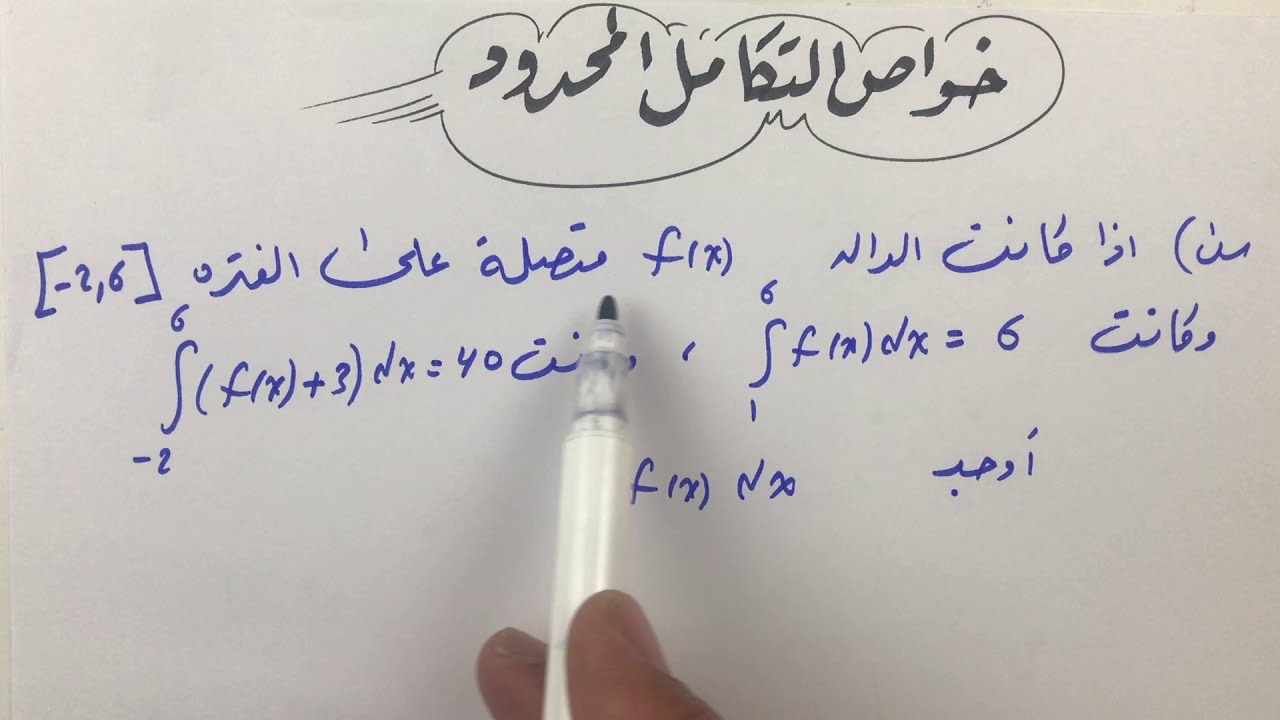 خواص التكامل المحدود
س) اذا كانت الداله f(x) متصلة على الفتره [-2,6]
وكانت ∫₁⁶ f(x) dx = 6 ، ∫₋₂⁶ (f(x)+3) dx = 40
أوجد f(x) dx